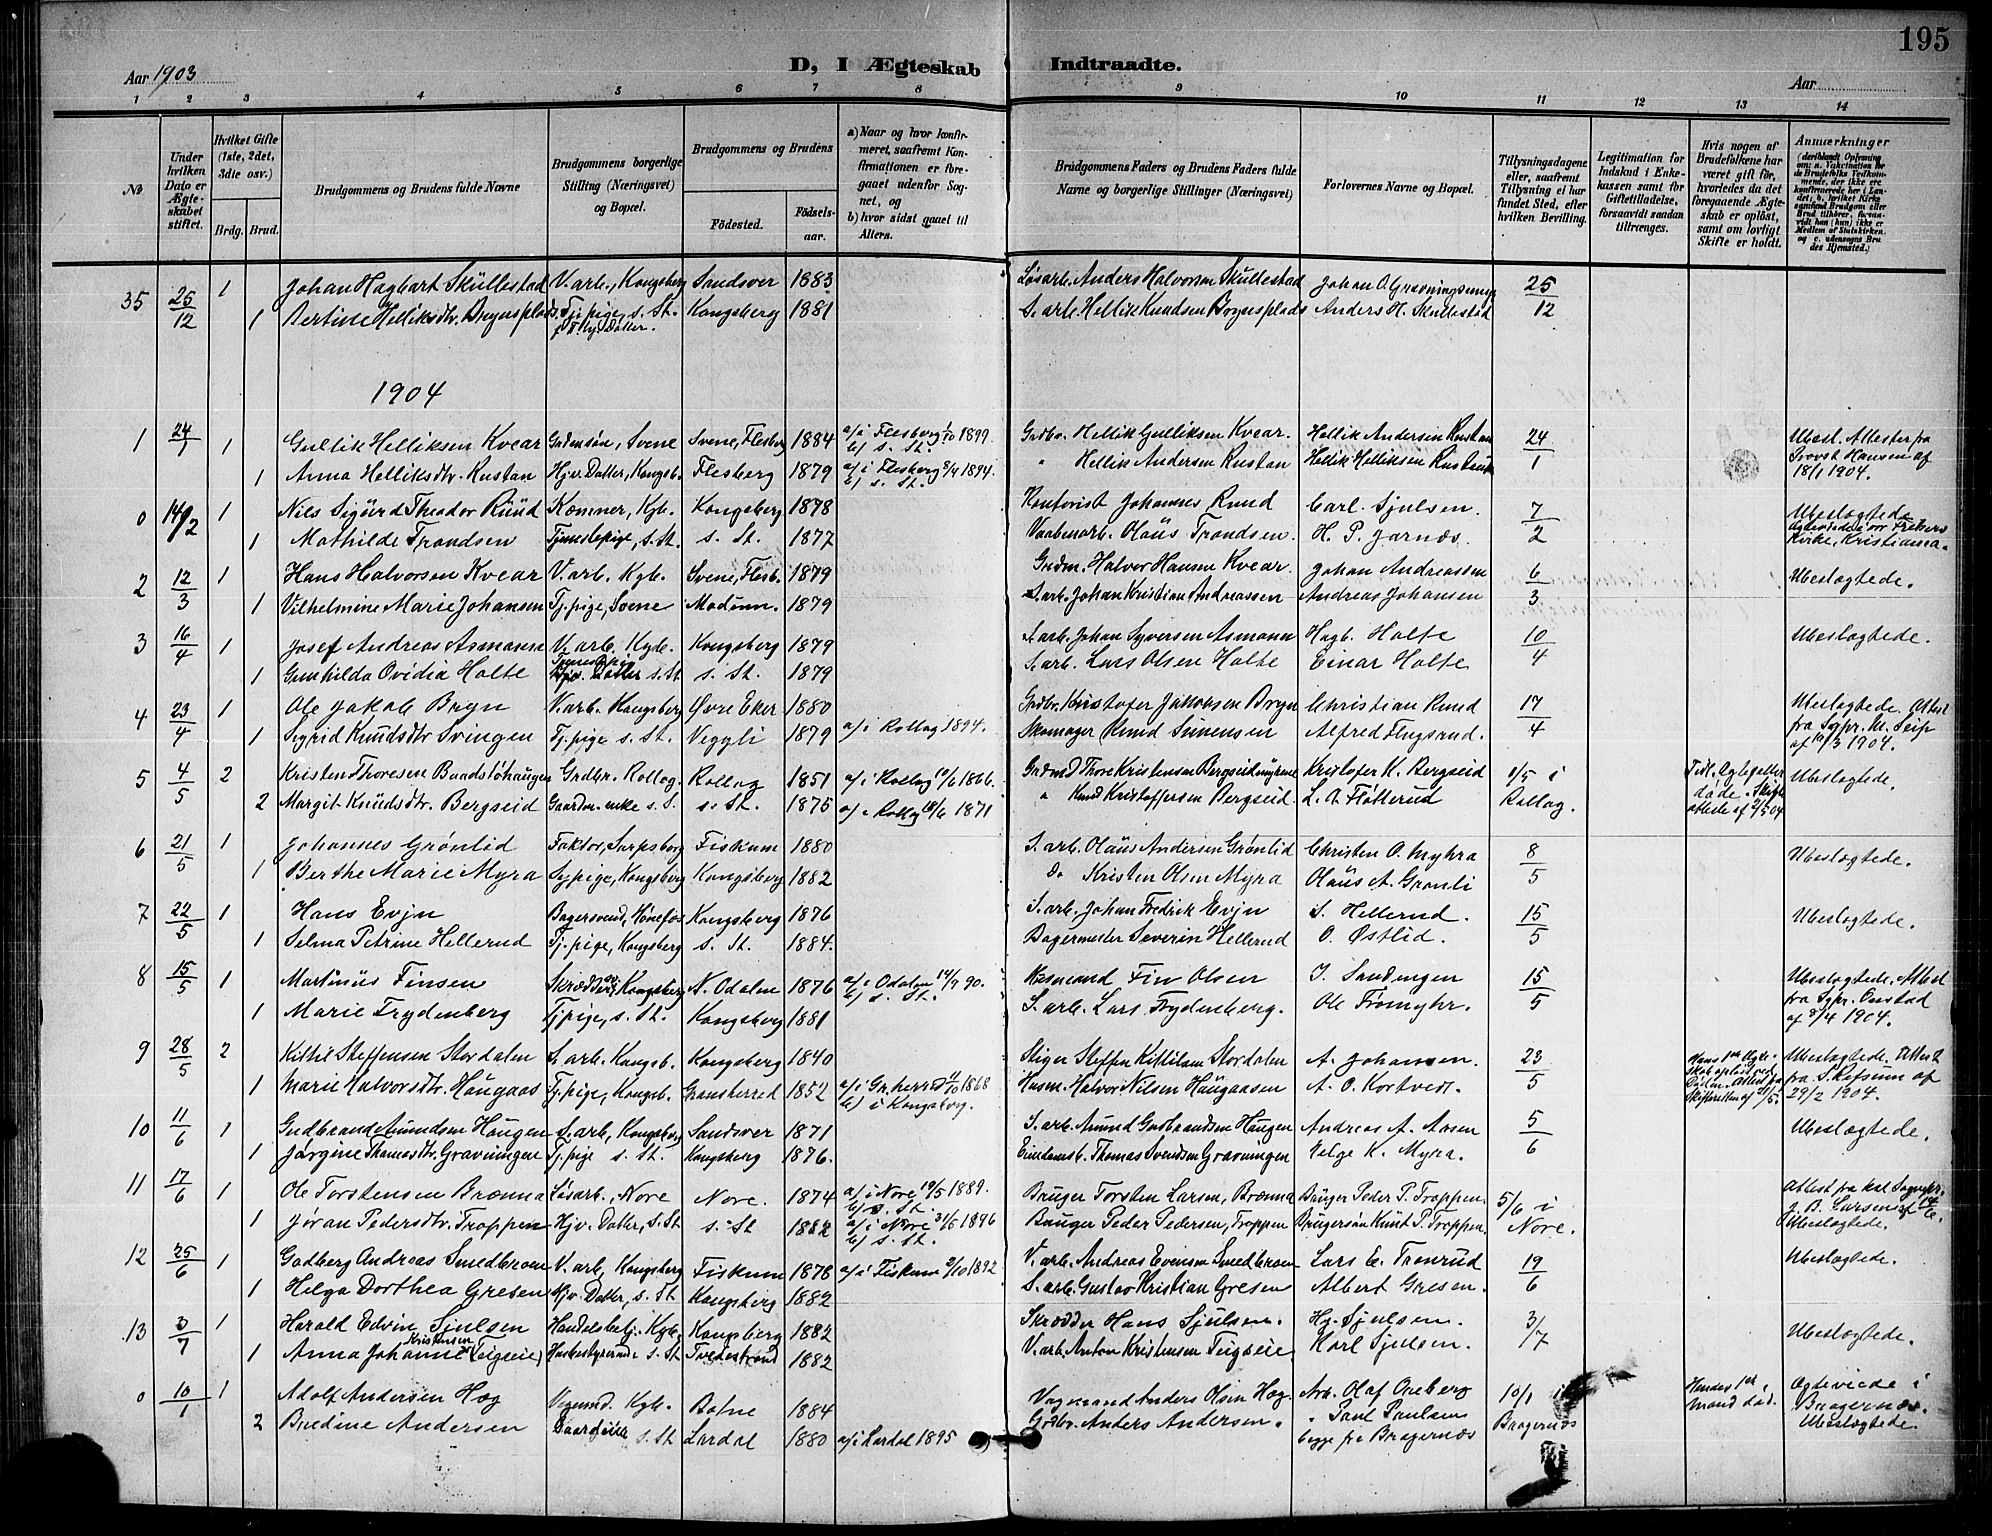 195
Aar 1903
D, I Ægteskab Indtraadte.
Aar
1 2 3 4 5 6 7 8 9 10 11 12 13 14
No
Under hvilken Dato er Ægteskabet stiftet.
Hvilket Gifte (1ste, 2det, 3die osv.)
Brdg. Brud.
Brudgommens og Brudens fulde Navne
Brudgommens borgerlige Stilling (Næringsvei) og Bopæl.
Brudgommens og Brudens
Fødested.
Fødselsaar.
a) Naar og hvor konfirmeret, saafremt Konfirmationen er foregaaet udenfor Sognet, og
b) hvor sidst gaaet til Alters.
Brudgommens Faders og Brudens Faders fulde Navne og borgerlige Stillinger (Næringsvei)
Forlovernes Navne og Bopæl.
Tillysningsdagene eller, saafremt Tillysning ei har fundet Sted, efter hvilken Bevilling.
Legitimation for Indskud i Enkekassen samt for Giftetilladelse, forsaavidt saadan tiltrænges.
Hvis nogen af Brudefolkene har været gift før, hvorledes da det foregaaende Ægteskab er opløst, samt om lovligt Skifte er holdt.
Anmærkninger
35 25/12 1 Johan Hagbart Skullestad V. arb., Kongsberg Sandsver 1883 Løsarb. Anders Halvorsen Skullestad Johan O. 25/12
1 Bertine Helliksdtr. Brynsplads Tj. pige, s. St. Kongsberg 1881 S. arb. Hellik Knudsen Brynsplads Anders H. Skullestad
1904
1 24/1 1 Gullik Helliksen Kvear Gaardmsøn, Svene Svene, Flesberg 1884 a/ i Flesberg 1/10 1899. b/ s. St. Grdbr. Hellik Gulliksen Kvear. Hellik Andersen Rustan 24/1 Ubesl. Attester fra Provst Hansen af 18/1 1904.
1 Anna Helliksdtr. Rustan Hjv. Datter, Kongsb. Flesberg 1879 a/ i Flesberg 8/4 1894. b/ s. St. " Hellik Andersen Rustan Hellik Helliksen Rustan
0 14/2 1 Nils Sigurd Theodor Ruud Kæmner, Kgb. Kongsberg 1878 Kontorist Johannes Ruud Carl Sjulsen. 7/2 Ubeslægtede Kirke, Kristiania.
1 Mathilde Trondsen Tjenestepige, s. St. s. St. 1877 Vaabenarb. Olaus Trondsen. H. P. Jarnæs.
2 12/3 1 Hans Halvorsen Kvear V. arb. Kgb. Svene, Flesb. 1879 Grdm. Halvor Hansen Kvear. Johan Andreassen 6/3 Ubeslægtede.
1 Vilhelmine Marie Johansen Tj. pige, Svene Modum. 1879 S. arb. Johan Kristian Andreassen Andreas Johansen
3 16/4 1 Josef Andreas Asmann V. arb. Kgb. Kongsberg 1879 S. arb. Johan Syversen Asmann Hagb. Holte 10/4 Ubeslægtede.
1 Gunhilda Ovidia Holte Hjv. Datter s. St s. St. 1879 S. arb. Lars Olsen Holte Einar Holte
4 23/4 1 Ole Jakob Bryn V. arb. Kongsberg Øvre Eker 1880 Grdbr. Kristofer Jakobsen Bryn Christian Ruud 17/4 Ubeslægtede. Attest fra Sgpr. M. Seip af 19/3 1904.
1 Sigrid Knudsdtr Svingen Tj. pige s. St. Veggli 1879 a/ i Rollag 1894. Skomager Knud Simensen Alfred Flugsrud.
5 4/5 2 Kristen Thoresen Baadslöhaugen Grdbr. Rollag. Rollag 1851 a/ i Rollag 10/6 1866. Grdmd Thore Kristensen Bergseidmyrene Kristofer K. Bergseid 1/5 i Rollag. Tidl. Ægtefæller døde. Skifteattest af 2/5 04 Ubeslægtede.
2 Margit Knudsdtr. Bergseid Gaardm. enke s. S. s. St. 1875 a/ i Rollag 18/6 1871 " Knud Kristoffersen Bergseid. L. A. Fløtterud
6 21/5 1 Johannes Grønlid Faktor, Sarpsborg Fiskum 1880 S. arb. Olaus Andersen Grønlid Christen O. Myhra 8/5 Ubeslægtede.
1 Berthe Marie Myra Sypige, Kongsberg Kongsberg 1882 do Kristen Olsen Myra Olaus A. Grønli
7 22/5 1 Hans Evjn Bagersvend, Hønefos Kongsberg 1876 S. arb. Johan Fredrik Evjn S. Hellerud. 15/5 Ubeslægtede.
1 Selma Petrine Hellerud Tj. pige, Kongsberg s. St. 1884. Bagermester Severin Hellerud O. Østlid.
8 15/5 1 Martinius Finsen Skrædder, Kongsberg N. Odalen 1876 a/ i Odalen 14/9 90. b/ s. St. Husmand Fin Olsen I. Sandengen 15/5 Ubeslægtede. Attest fra Sgpr. Onstad af 8/4 1904.
1 Marie Frydenberg Tj. pige, s. St. Kongsberg 1881 S. arb. Lars Frydenberg. Ole Fromyhr.
9 28/5 2 Kittil Steffensen Stordalen S. arb. Kongsb. Kongsberg 1840 Stiger Steffen Kittilsen Stordalen A. Johansen. 23/5 Hans 1ste Ægteskab opløst ved Døden. Attest fra Skifteretten af 21/5. Ubeslægtede. Attest fra S. Refsum af 29/2 1904.
1 Marie Halvorsdtr. Haugaas Tj. pige, Kongsb. Gransherred 1852 a/ i Gr. herred 11/10 1868 b) i Kongsberg. Husm. Halvor Nilsen Haugaasen A. O. Kortvedt.
10 11/6 1 Gudbrand Amundsen Haugen S. arb, Kongsberg Sandsver 1871 S. arb. Amund Gudbrandsen Haugen Andreas A. Aasen 5/6 Ubeslægtede.
1 Jørgine Thomasdtr. Gravningen Tj. pige s. St. Kongsberg 1876. Eiendomsb. Thomas Svendsen Gravningen Helge K. Myra.
11 17/6 1 Ole Torstensen Brænna Løsarb., Nore Nore. 1874 a/ i Nore 19/5 1889. b/ s. St. Bruger Torsten Larsen, Brænna Bruger Peder P. Troppen. 5/6 i Nore. Attest fra kal. Sognepr. J. B. Larsen af 14/6. Ubeslægtede.
1 Jøran Pedersdtr. Troppen Hjv. Datter, s. St s. St 1882 a/ i Nore 31/5 1896 b/ s. St. Bruger Peder Pedersen, Troppen Brugersøn Knut P. Troppen.
12 25/6 1 Godberg Andreas Smedbroen V. arb, Kongsberg Fiskum 1878 a/ i Fiskum 2/10 1892 V. arb. Andreas Evensen Smedbroen Lars E. Tronrud 19/6 Ubeslægtede.
1 Helga Dorthea Gresen Hjv. Datter, s. St Kongsberg 1882 S. arb. Gustav Kristian Gresen Albert Gresen.
13 3/7 1 Harald Edvin Sjulsen Handelsbetj. Kgb. Kongsberg 1882 Skrædder Hans Sjulsen. Hg. Sjulsen. 3/7 Ubeslægtede.
1 Anna Johanne Kristensen (Teigseie) Husbestyrerinde s. St Tvedestrand 1882 V. arb. Anton Kristensen Teigseie Karl Sjulsen.
0 10/1 1 Adolf Andersen Hæg Vognmd. Kgb. Botne 1884 Vognmand Anders Olsen Hæg. Arb. Olaf Oreberg 10/1 i Bragernæs Hendes 1ste mand død. Ægteviede i Bragernæs. Ubeslægtede.
2 Bredine Andersen s. St Lardal 1880 a/ i Lardal 1895 Grdbr. Anders Andersen. " Paul Paulsen begge fra Bragernæs